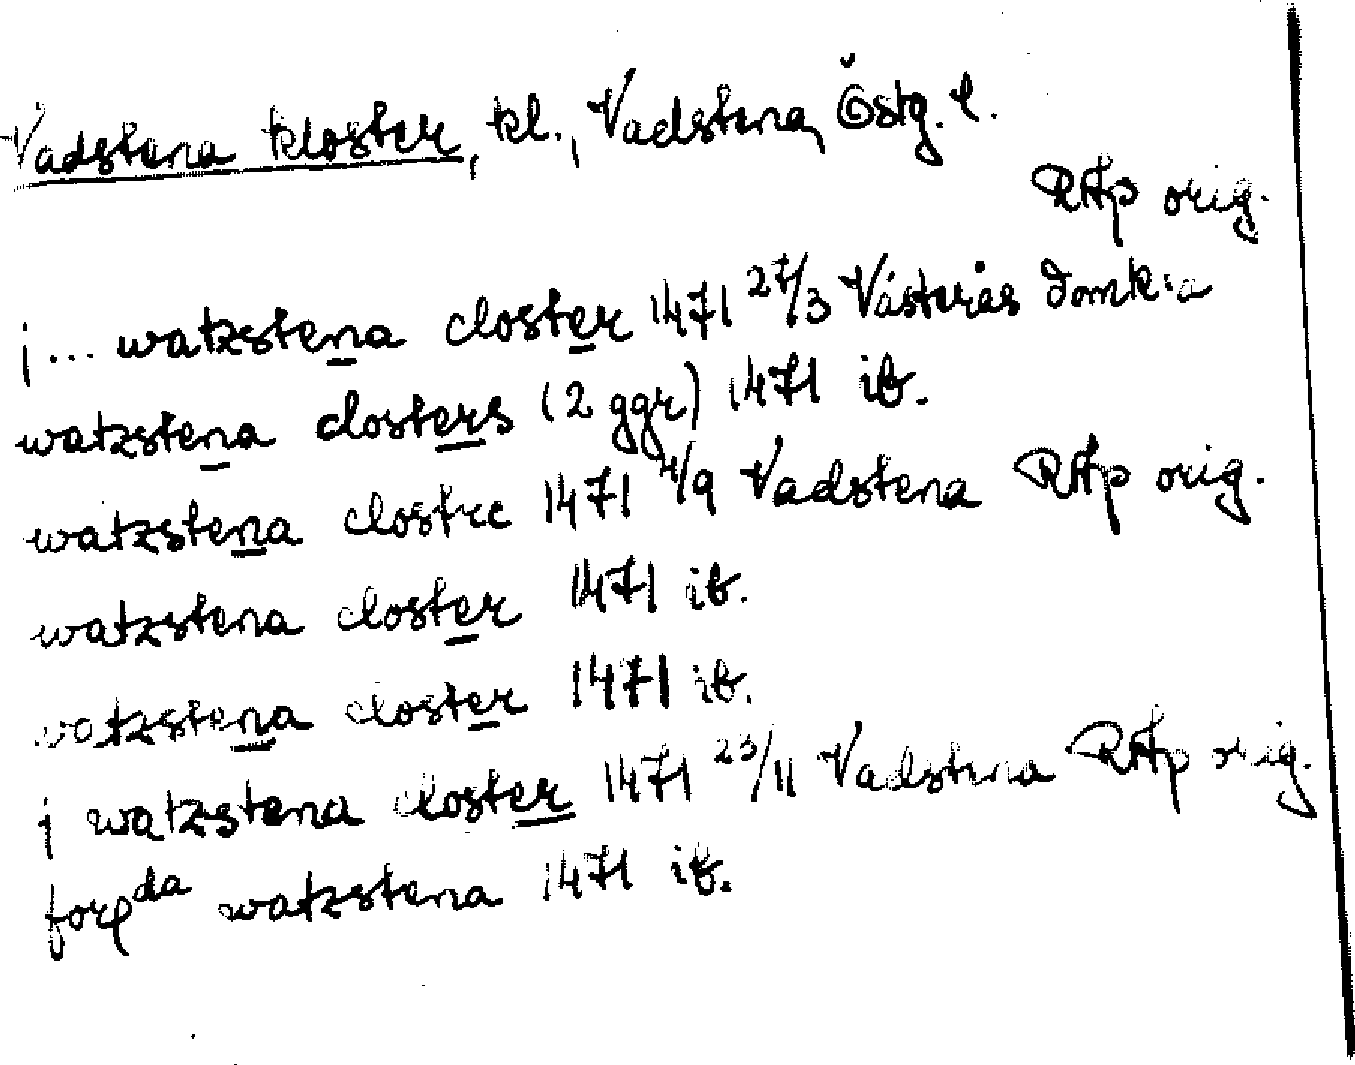 Vadstena kloster, kl., Vadstena, Östg. l.
RAp orig.
j ... watzstena closter 1471 27/3 Västerås domk:a
watzstena closters (2 ggr) 1471 ib.
watzstena clostre 1471 4/9 Vadstena RAp orig.
watzstena closter 1471 ib.
watzstena closter 1471 ib.
j watzstena closter 1471 23/11 Vadstena RAp orig.
watzstena 1471 ib.